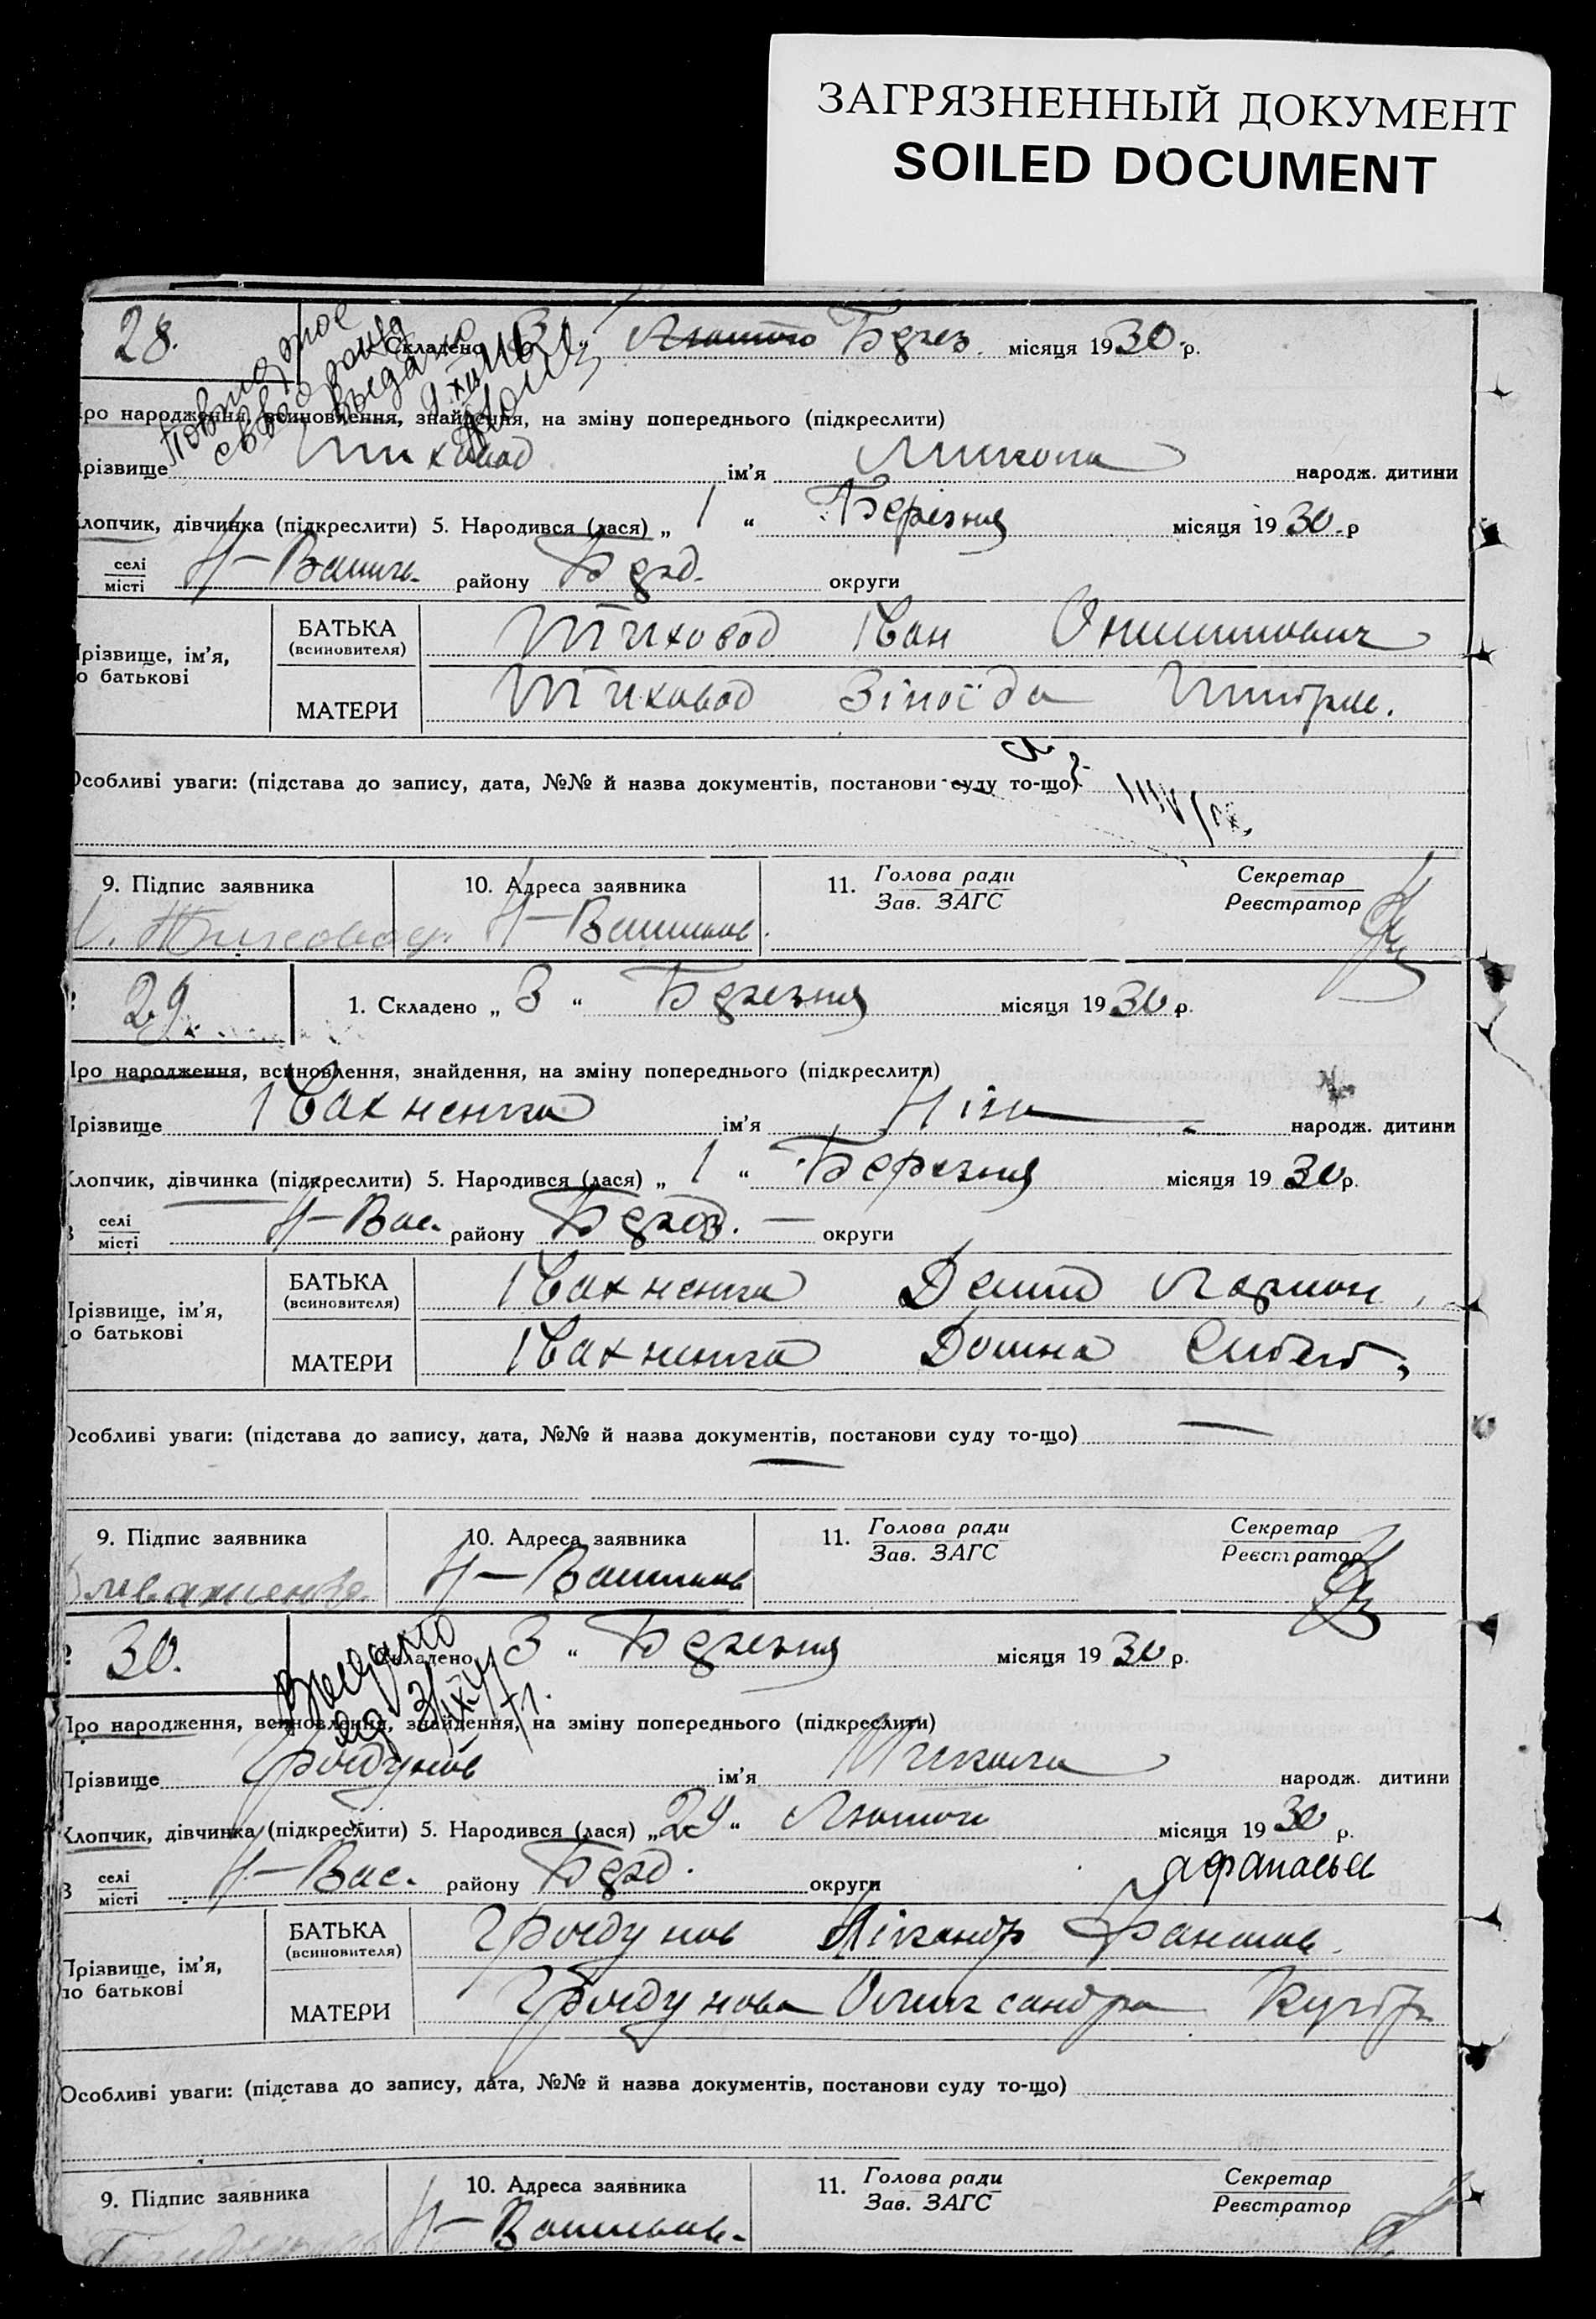 ЗАГРЯЗНЕННЫЙ ДОКУМЕНТ
SOILED DOCUMENT
28.
Повторное
свид
выдано
Складено 3 " Лютого Берез. місяця 1930 р.
ро народження, всиновлення, знайдення, на зміну попереднього (підкреслити)
різвище Тиховод ім'я Микола народж. дитини
лопчик, дівчинка (підкреслити) 5. Народився (лася) „ 1 " Березня місяця 1930.р
селі
місті Н-Васил. району Берд. округи
різвище, ім'я,
о батькові
БАТЬКА
(всиновителя) Тиховод Іван Онисимович
МАТЕРИ Тиховод Зіноїда
Особливі уваги: (підстава до запису, дата, №№ й назва документів, постанови суду то-що)
9. Підпис заявника 10. Адреса заявника 11. Голова ради Секретар
Зав. ЗАГС Реєстратор
Тиховод Н-Васильев.
29. 1. Складено „ 3 " Березня місяця 1930 р.
Про народження, всиновлення, знайдення, на зміну попереднього (підкреслити)
Прізвище Івахненко ім'я Ніна народж. дитини
Клопчик, дівчинка (підкреслити) 5. Народився (лася) „ 1 " Березня місяця 1930р.
В селі
місті Н-Вас. району Берд. — округи
Прізвище, ім'я,
по батькові
БАТЬКА
(всиновителя) Івахненко Демид Ларион,
МАТЕРИ Івахненко Домна
Особливі уваги: (підстава до запису, дата, №№ й назва документів, постанови суду то-що) —
—
9. Підпис заявника 10. Адреса заявника 11. Голова ради Секретар
Зав. ЗАГС Реєстратор
Ивахненко Н-Васильев
30. Складено 3 " Березня місяця 1930 р.
Выдано
3/IX
71.
Про народження, всиновлення, знайдення, на зміну попереднього (підкреслити)
Прізвище ім'я Микола народж. дитини
Клопчик, дівчинка (підкреслити) 5. Народився (лася) „29" Лютого місяця 1930 р.
В селі
місті Н-Вас. району Берд. округи
афанасьев
Прізвище, ім'я,
по батькові
БАТЬКА
(всиновителя) Нікандр
МАТЕРИ Олександра
Особливі уваги: (підстава до запису, дата, №№ й назва документів, постанови суду то-що)
9. Підпис заявника 10. Адреса заявника 11. Голова ради Секретар
Зав. ЗАГС Реєстратор
Н-Васильев.